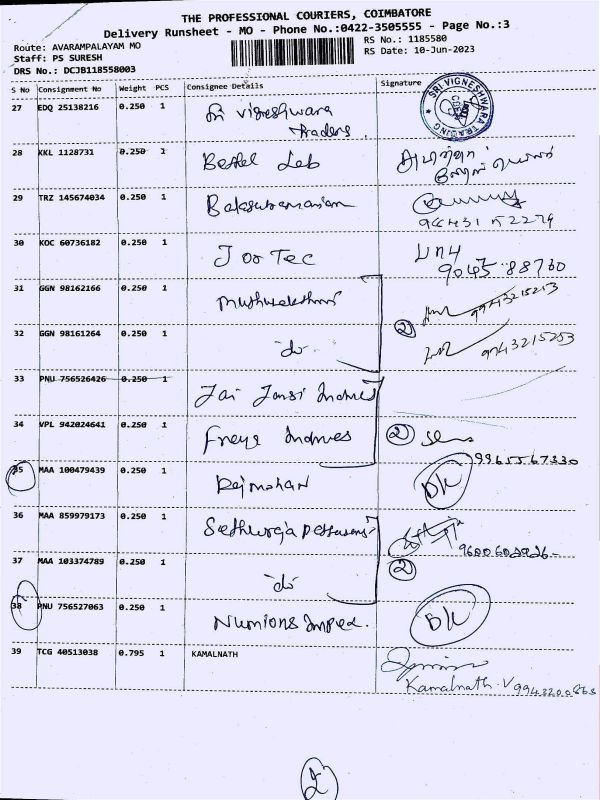 THE PROFESSIONAL COURIERS, COIMBATORE
Delivery Runsheet - MO - Phone No.:0422-3505555 - Page No.:3
Route: AVARAMPALAYAM MO
RS No.: 1185580
Staff: PS SURESH
RS Date: 10-Jun-2023
DRS No.: DCJB118558003
S No Consignment No Weight PCS Consignee Details Signature
27 EDQ 25138216 0.250 1 Sri Vigneshwara
Traders
SRI VIGNESHWARA TRADING
28 KKL 1128731 0.250 1 Bethel Lab
29 TRZ 145674034 0.250 1 Balasubramaniam
30 KOC 60736182 0.250 1 J or Tec
90475 88760
31 GGN 98162166 0.250 1 Muthulakshmi
9943215253
32 GGN 98161264 0.250 1 do 2
9943215253
33 PNU 756526426 0.250 1 Jai Jansi Indures
34 VPL 942024641 0.250 1 Freya Indures 2
9965567330
35 MAA 100479439 0.250 1 Rajmohan DK
36 MAA 859979173 0.250 1
37 MAA 103374789 0.250 1 do 2
38 PNU 756527063 0.250 1 Numions Impex. DK
39 TCG 40513038 0.795 1 KAMALNATH
Kamalnath.V
2